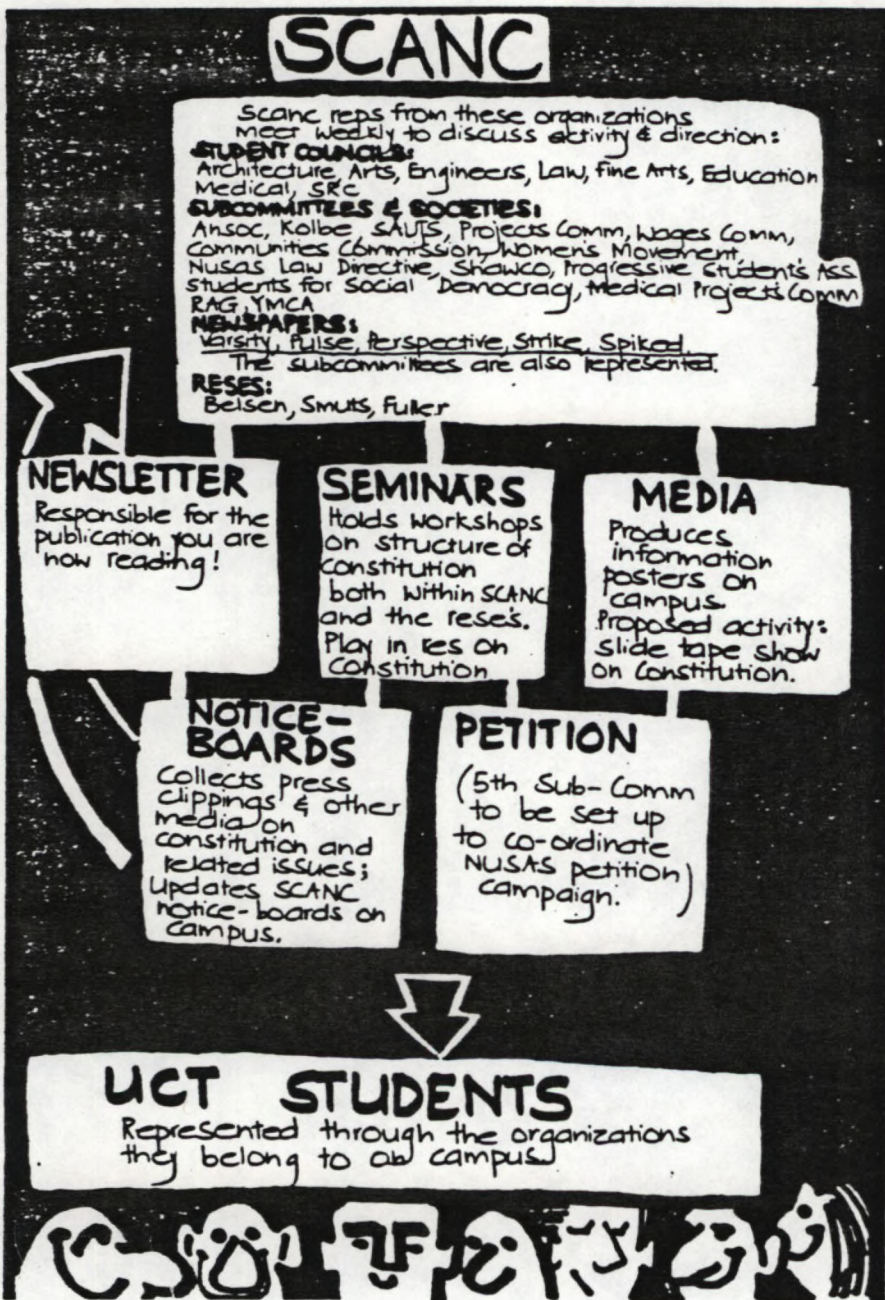 SCANC
Scanc reps from these organizations
meet weekly to discuss activity & direction:
STUDENT COUNCILS:
Architecture, Arts, Engineers, Law, fine Arts, Education
Medical, SRC
SUBCOMMITTEES & SOCIETIES:
Ansoc, Kolbe, SAUJS, Projects Comm, Wages Comm,
Communities Commission, Women's Movement,
Nusas Law Directive, Shawco, Progressive Student's Ass
Students for Social Democracy, Medical Projects Comm
RAG, YMCA
NEWSPAPERS:
Varsity, Pulse, Perspective, Strike, Spiked.
The subcommittees are also represented.
RESES:
Belsen, Smuts, Fuller
NEWSLETTER
Responsible for the
publication you are
now reading!
SEMINARS
Holds workshops
on structure of
constitution
both within SCANC
and the rese's.
Play in res on
Constitution
MEDIA
Produces
information
posters on
campus.
Proposed activity:
slide tape show
on Constitution.
NOTICE-
BOARDS
Collects press
clippings & other
media on
constitution and
related issues;
updates SCANC
notice-boards on
campus.
PETITION
(5th Sub-Comm
to be set up
to co-ordinate
NUSAS petition
campaign.)
UCT STUDENTS
Represented through the organizations
they belong to on campus